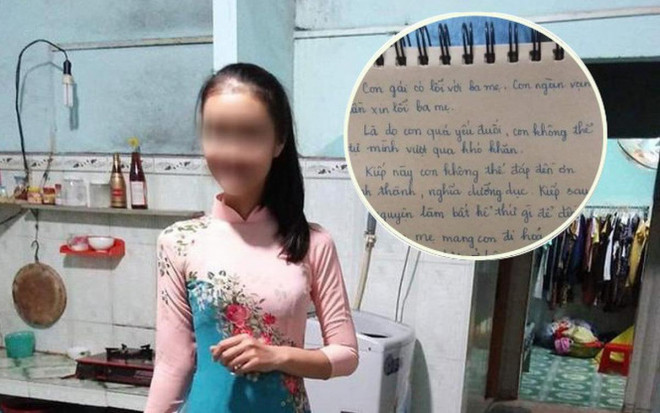 Con gái có lỗi với ba mẹ. Con ngàn vạn
lần xin lỗi ba mẹ.
Là do con quá yếu đuối, con không thể
tự mình vượt qua khó khăn.
Kiếp này con không thể đáp đền ơn
thành, nghĩa dưỡng dục. Kiếp sau
nguyện làm bất kì thứ gì để
mẹ mang con đi hoả